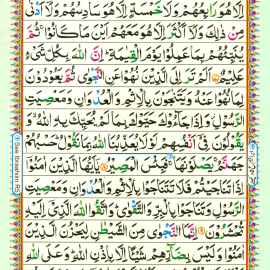 اِلَّا هُوَ رَابِعُهُمْ وَلَا خَمْسَةٍ اِلَّا هُوَ سَادِسُهُمْ وَلَاۤ اَدْنٰى
مِنْ ذٰلِكَ وَلَاۤ اَكْثَرَ اِلَّا هُوَ مَعَهُمْ اَيْنَ مَا كَانُوْاۚ ثُمَّ
يُنَبِّئُهُمْ بِمَا عَمِلُوْا يَوْمَ الْقِيٰمَةِؕ اِنَّ اللّٰهَ بِكُلِّ شَيْءٍ
عَلِيْمٌ اَلَمْ تَرَ اِلَى الَّذِيْنَ نُهُوْا عَنِ النَّجْوٰى ثُمَّ يَعُوْدُوْنَ
لِمَا نُهُوْا عَنْهُ وَيَتَنٰجَوْنَ بِالْاِثْمِ وَالْعُدْوَانِ وَمَعْصِيَتِ
الرَّسُوْلِؗ وَاِذَا جَآءُوْكَ حَيَّوْكَ بِمَا لَمْ يُحَيِّكَ بِهِ اللّٰهُۙ وَ
يَقُوْلُوْنَ فِيْۤ اَنْفُسِهِمْ لَوْلَا يُعَذِّبُنَا اللّٰهُ بِمَا نَقُوْلُؕ حَسْبُهُمْ
جَهَنَّمُۚ يَصْلَوْنَهَاۚ فَبِئْسَ الْمَصِيْرُ يٰۤاَيُّهَا الَّذِيْنَ اٰمَنُوْۤا
اِذَا تَنَاجَيْتُمْ فَلَا تَتَنَاجَوْا بِالْاِثْمِ وَالْعُدْوَانِ وَمَعْصِيَتِ
الرَّسُوْلِ وَتَنَاجَوْا بِالْبِرِّ وَالتَّقْوٰىؕ وَاتَّقُوا اللّٰهَ الَّذِيْۤ اِلَيْهِ
تُحْشَرُوْنَ اِنَّمَا النَّجْوٰى مِنَ الشَّيْطٰنِ لِيَحْزُنَ الَّذِيْنَ
اٰمَنُوْا وَلَيْسَ بِضَآرِّهِمْ شَيْـًٔا اِلَّا بِاِذْنِ اللّٰهِؕ وَعَلَى اللّٰهِ
See Ibrahim R5